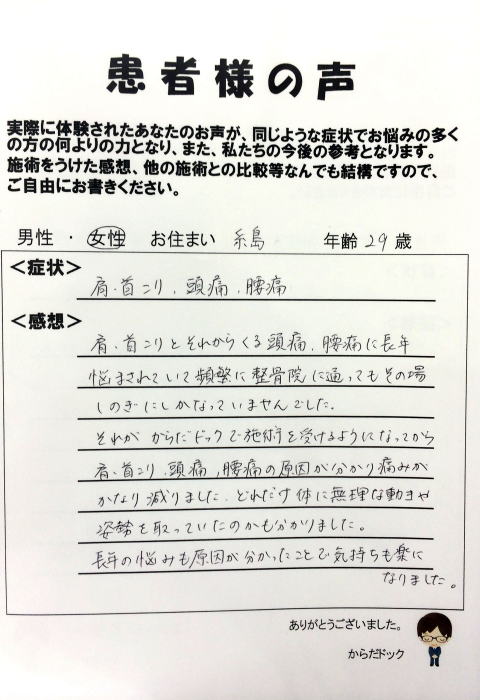 患者様の声
実際に体験されたあなたのお声が、同じような症状でお悩みの多く
の方の何よりの力となり、また、私たちの今後の参考となります。
施術をうけた感想、他の施術との比較等なんでも結構ですので、
ご自由にお書きください。
男性 ・ 女性 お住まい 糸島 年齢 29 歳
<症状>
肩・首こり、頭痛、腰痛
<感想>
肩・首こりとそれからくる頭痛、腰痛に長年
悩まされていて頻繁に整骨院に通ってもその場
しのぎにしかなっていませんでした。
それが からだドックで施術を受けるようになってから
肩・首こり、頭痛、腰痛の原因が分かり痛みが
かなり減りました。どれだけ体に無理な動きや
姿勢を取っていたのかも分かりました。
長年の悩みも原因が分かったことで気持ちも楽に
なりました。
ありがとうございました。
からだドック